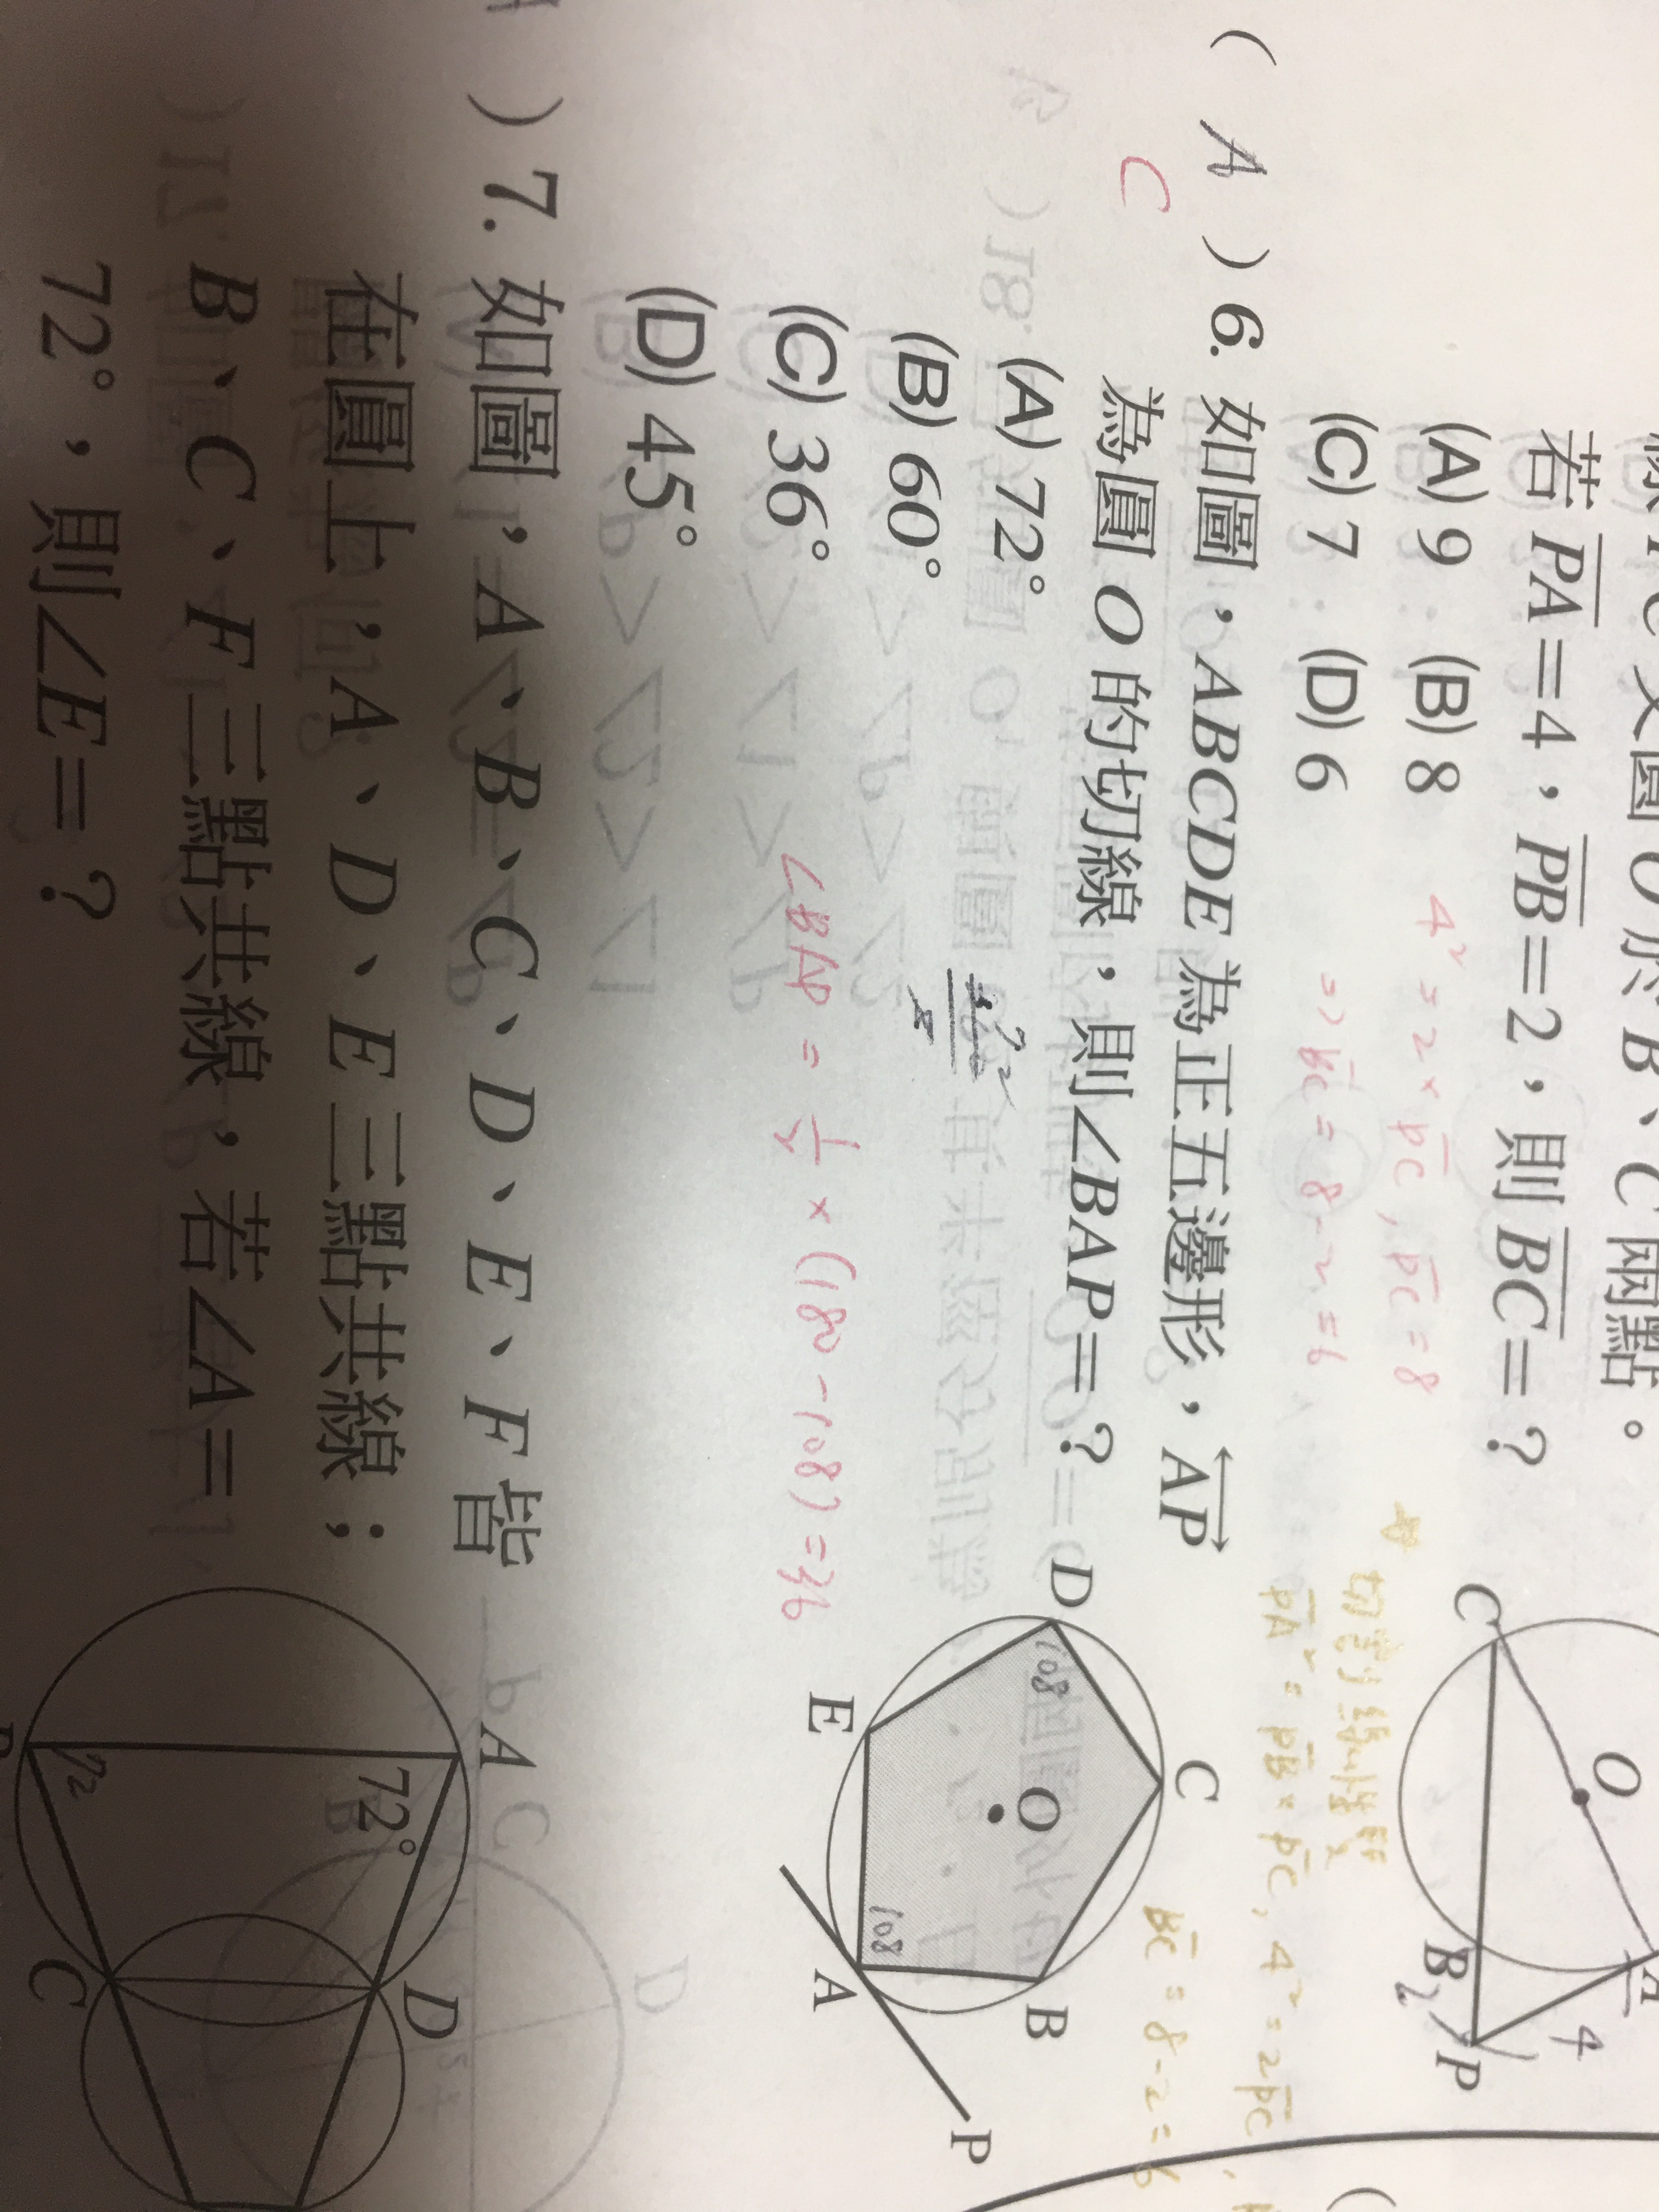 若 PA=4，PB=2，則 BC=？
(A) 9 (B) 8
(C) 7 (D) 6
4² = 2 × PC, PC = 8
=> BC = 8 - 2 = 6
PA² = PB × PC, 4² = 2PC
BC = 8 - 2 = 6
C
O
A
B
P
2
4
( A ) 6. 如圖，ABCDE 為正五邊形，AP
C
為圓 O 的切線，則∠BAP=？
(A) 72°
(B) 60°
(C) 36°
(D) 45°
∠BAP = 1/2 × (180 - 108) = 36
D
C
E
O
A
B
P
108
108
) 7. 如圖，A、B、C、D、E、F 皆
在圓上，A、D、E 三點共線；
B、C、F 三點共線，若∠A=
72°，則∠E=？
A
72°
72
C
D